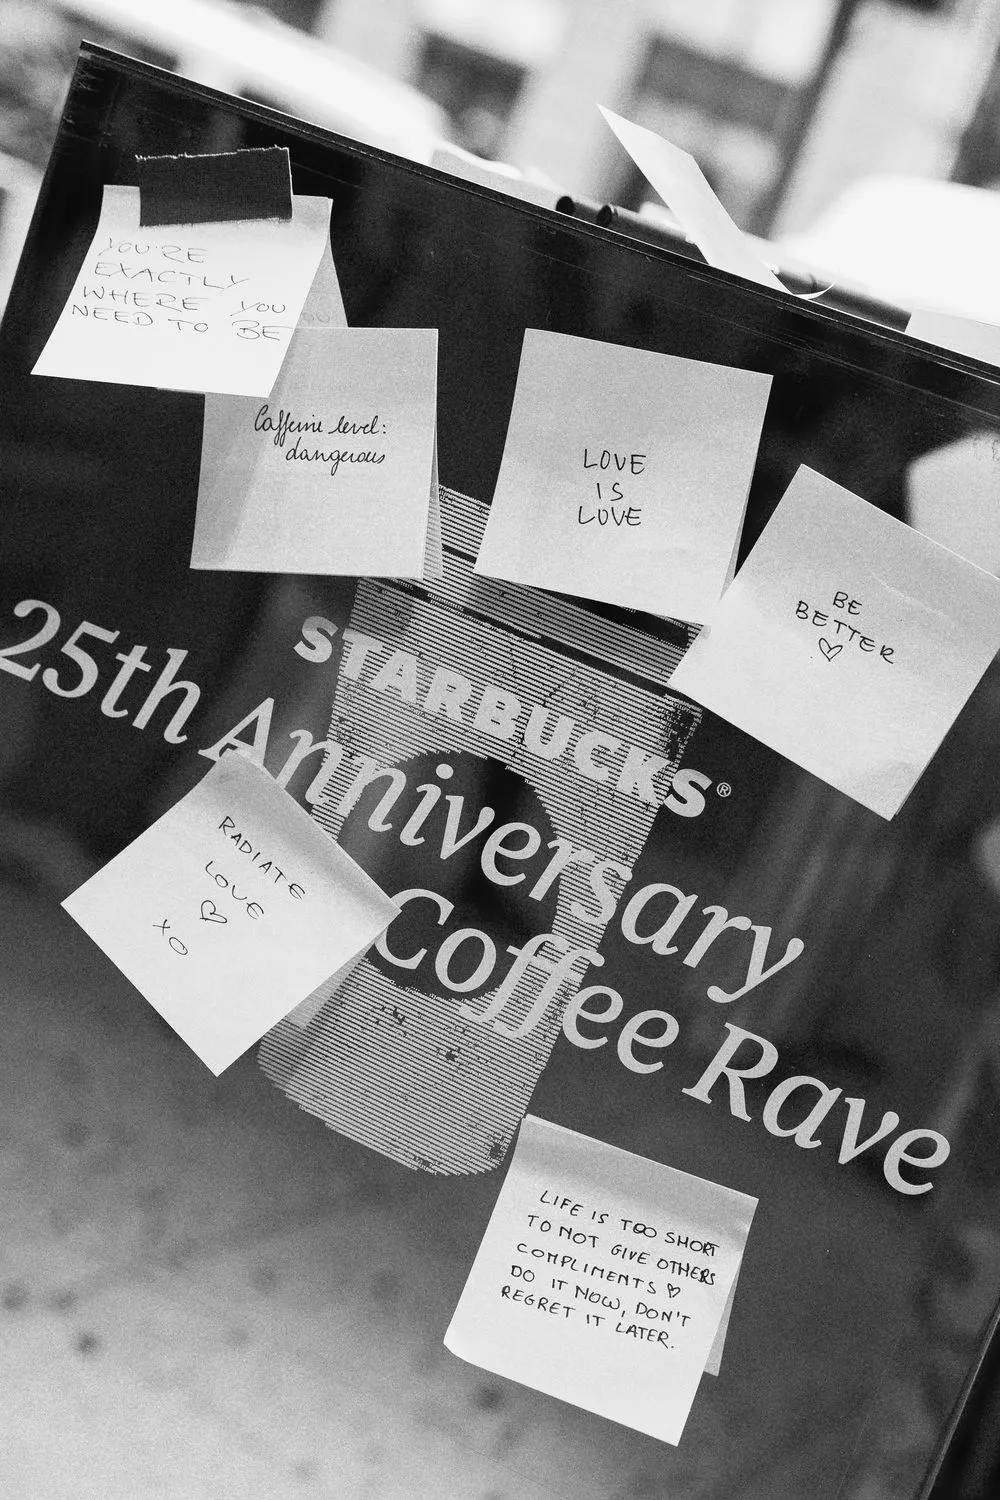 YOU'RE
EXACTLY
WHERE YOU
NEED TO BE
Caffeine level:
dangerous
LOVE
IS
LOVE
BE
BETTER
♡
STARBUCKS®
25th Anniversary
Coffee Rave
RADIATE
LOVE
♡
XO
LIFE IS TOO SHORT
TO NOT GIVE OTHERS
COMPLIMENTS ♡
DO IT NOW, DON'T
REGRET IT LATER.